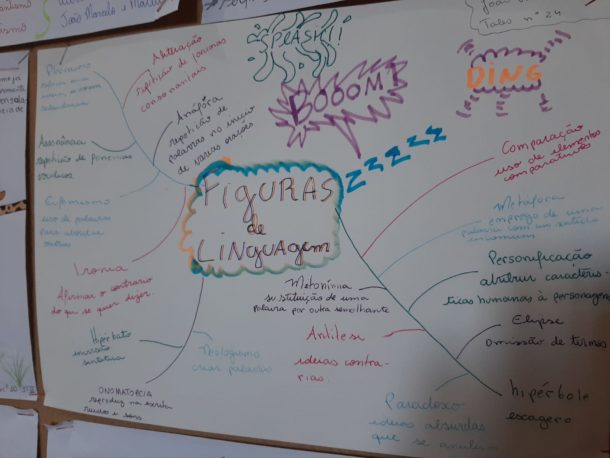 João Marcelo e
SPLASH!!
BOOOM!
DING
ZZZZZZ
João
Tales n° 24
FIGURAS
de
LINGUAGEM
Pleonasmo
Aliteração
repetição de fonemas
consonantais
Anáfora
repetição de
palavras no início
de várias orações
Assonância
repetição de fonemas
vocálicos
Eufemismo
uso de palavras
para
Ironia
Afirmar o contrário
do que se quer dizer.
Hipérbato
inversão
sintática
ONOMATOPEIA
reproduz na escrita
ruídos e sons
Neologismo
criar palavras
Comparação
uso de elementos
comparativos
Metáfora
emprego de uma
palavra com um sentido
incomum
Personificação
atribuir caracterís-
ticas humanas à personagens
Elipse
omissão de termos
hipérbole
exagero
Metonímia
substituição de uma
palavra por outra semelhante
Antítese
ideias contrá-
rias.
Paradoxo
ideias absurdas
que se anulam